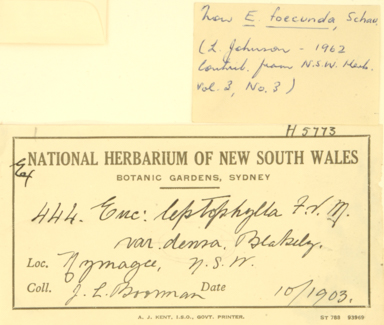 now E. foecunda, Schau
(L. Johnson - 1962
Contrib. from N.S.W. Herb.
Vol. 3, No. 3)
H 5773
Ex
NATIONAL HERBARIUM OF NEW SOUTH WALES
BOTANIC GARDENS, SYDNEY
444. Euc: leptophylla F.v.M.
var. densa, Blakely.
Loc. Nymagee, N.S.W.
Coll. J. L. Boorman Date 10/1903.
A. J. KENT, I.S.O., GOVT. PRINTER. SY 788 83869